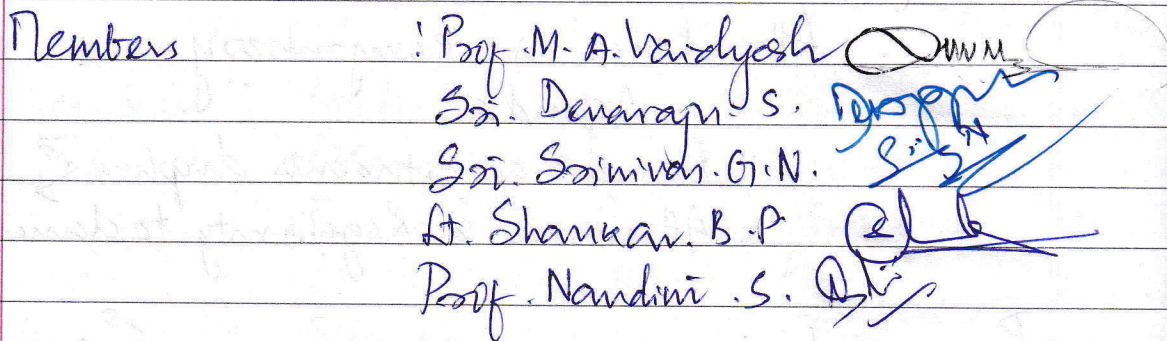 Members : Prof. M. A. Vaidyash
Sri. Devaraju. S.
Sri. Srinivas. G. N.
Lt. Shankar. B. P
Prof. Nandini. S.